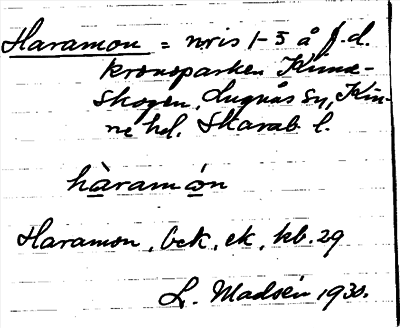 Haramon = nris 1-5 å f.d.
kronoparken Kinne-
skogen, Lugnås sn, Kin-
ne hd. Skarab. l.
hàramón
Haramon, bek, ek, kb. 29
L. Madsén 1930.